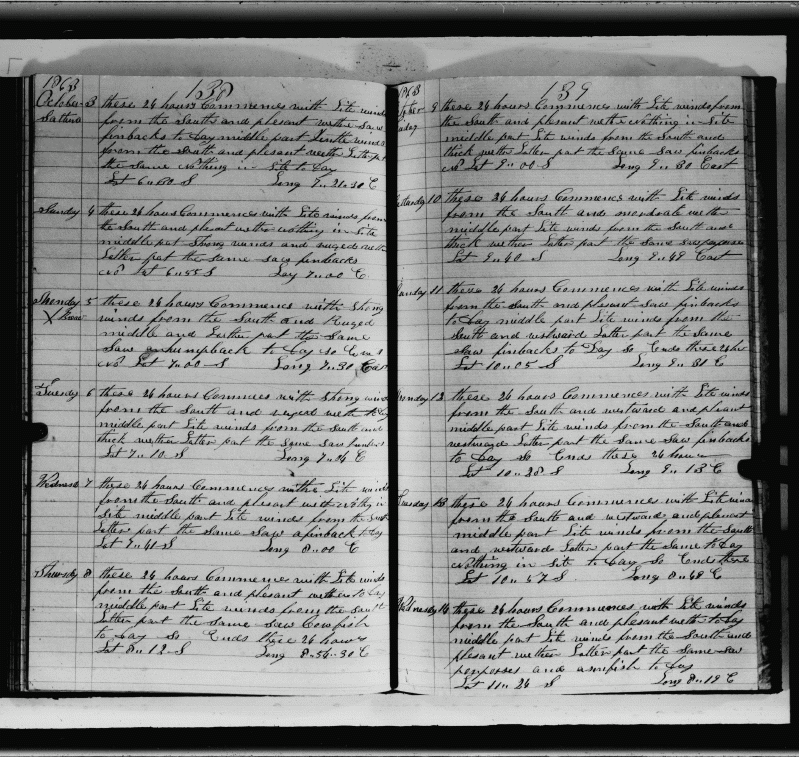 1863
138
October 3 these 24 hours Commences with Lite winds
Sathra from the South and plesant wether Saw
finbacks to Day middle part Lentle winds
from the South and plesant weth Latter part
the Same Nothing in Site to Day
Lat 6 " 60 S Long 7 " 21 " 30 E
Sunday 4 these 24 hours Commences with Lite winds from
the South and plesant wether Nothing in Site
middle part Strong winds and ruged weth
Latter part the same saw finbacks
No Lat 6 " 55 S Log 7 " 00 E
Monday 5 these 24 hours Commenc with Strong
winds from the South and Ruged
middle and Latter part the Same
Saw a humpback to Day So Ends
No Lat 7 " 00 S Long 7 " 30 East
Tuesday 6 these 24 hours Commces with Strong wind
from the South and ruged weth
middle part Lite winds from the South and
thick wether Latter part the Same Saw
Lat 7 " 10 S Long 7 " 04 E
Wednesd 7 these 24 hours Commences with Lite winds
from the South and plesant weth Nothg in
Site middle part Lite winds from the South
Latter part the Same Saw a finback to Day
Lat 7 " 41 S Long 8 " 00 E
Thursdy 8 these 24 hours Commences with Lite winds
from the South and plesant wether to Day
middle part Lite winds from the South
Latter part the same saw Cowfish
to Day So Ends these 24 hours
Lat 8 " 12 S Long 8 " 54 " 30 E
1863
139
9 these 24 hours Commences with Lite winds from
the South and plesant wether Nothing in Site
middle part Lite winds from the South and
thick wether Latter part the Same Saw finbacks
No Lat 9 " 00 S Long 9 " 30 East
10 these 24 hours Commences with Lite winds
from the South and moderate weth
middle part Lite winds from the South and
thick wether Latter part the Same Saw
Lat 9 " 40 S Long 9 " 49 East
Sunday 11 these 24 hours Commences with Lite winds
from the South and plesant Saw finbacks
to Day middle part Lite winds from the
South and westward Latter part the Same
Saw finbacks to Day So Ends these 24 hr
Lat 10 " 05 S Long 9 " 31 E
Monday 12 these 24 hours Commences with Lite winds
from the South and westward and plesant
middle part Lite winds from the South and
westward Latter part the Same Saw finbacks
to Day So Ends these 24 hours
Lat 10 " 28 S Long 9 " 13 E
Tuesday 13 these 24 hours Commences with Lite winds
from the South and westward and plesant
middle part Lite winds from the South
and westward Latter part the Same to Day
Nothing in Sit to Day So Ends there
Lat 10 " 57 S Long 8 " 48 E
Wednesday 14 these 24 hours Commences with Lite winds
from the South and plesant weth to Day
middle part Lite winds from the South and
plesant wether Latter part the Same Saw
porposses and to Day
Lat 11 " 24 S Long 8 " 19 E